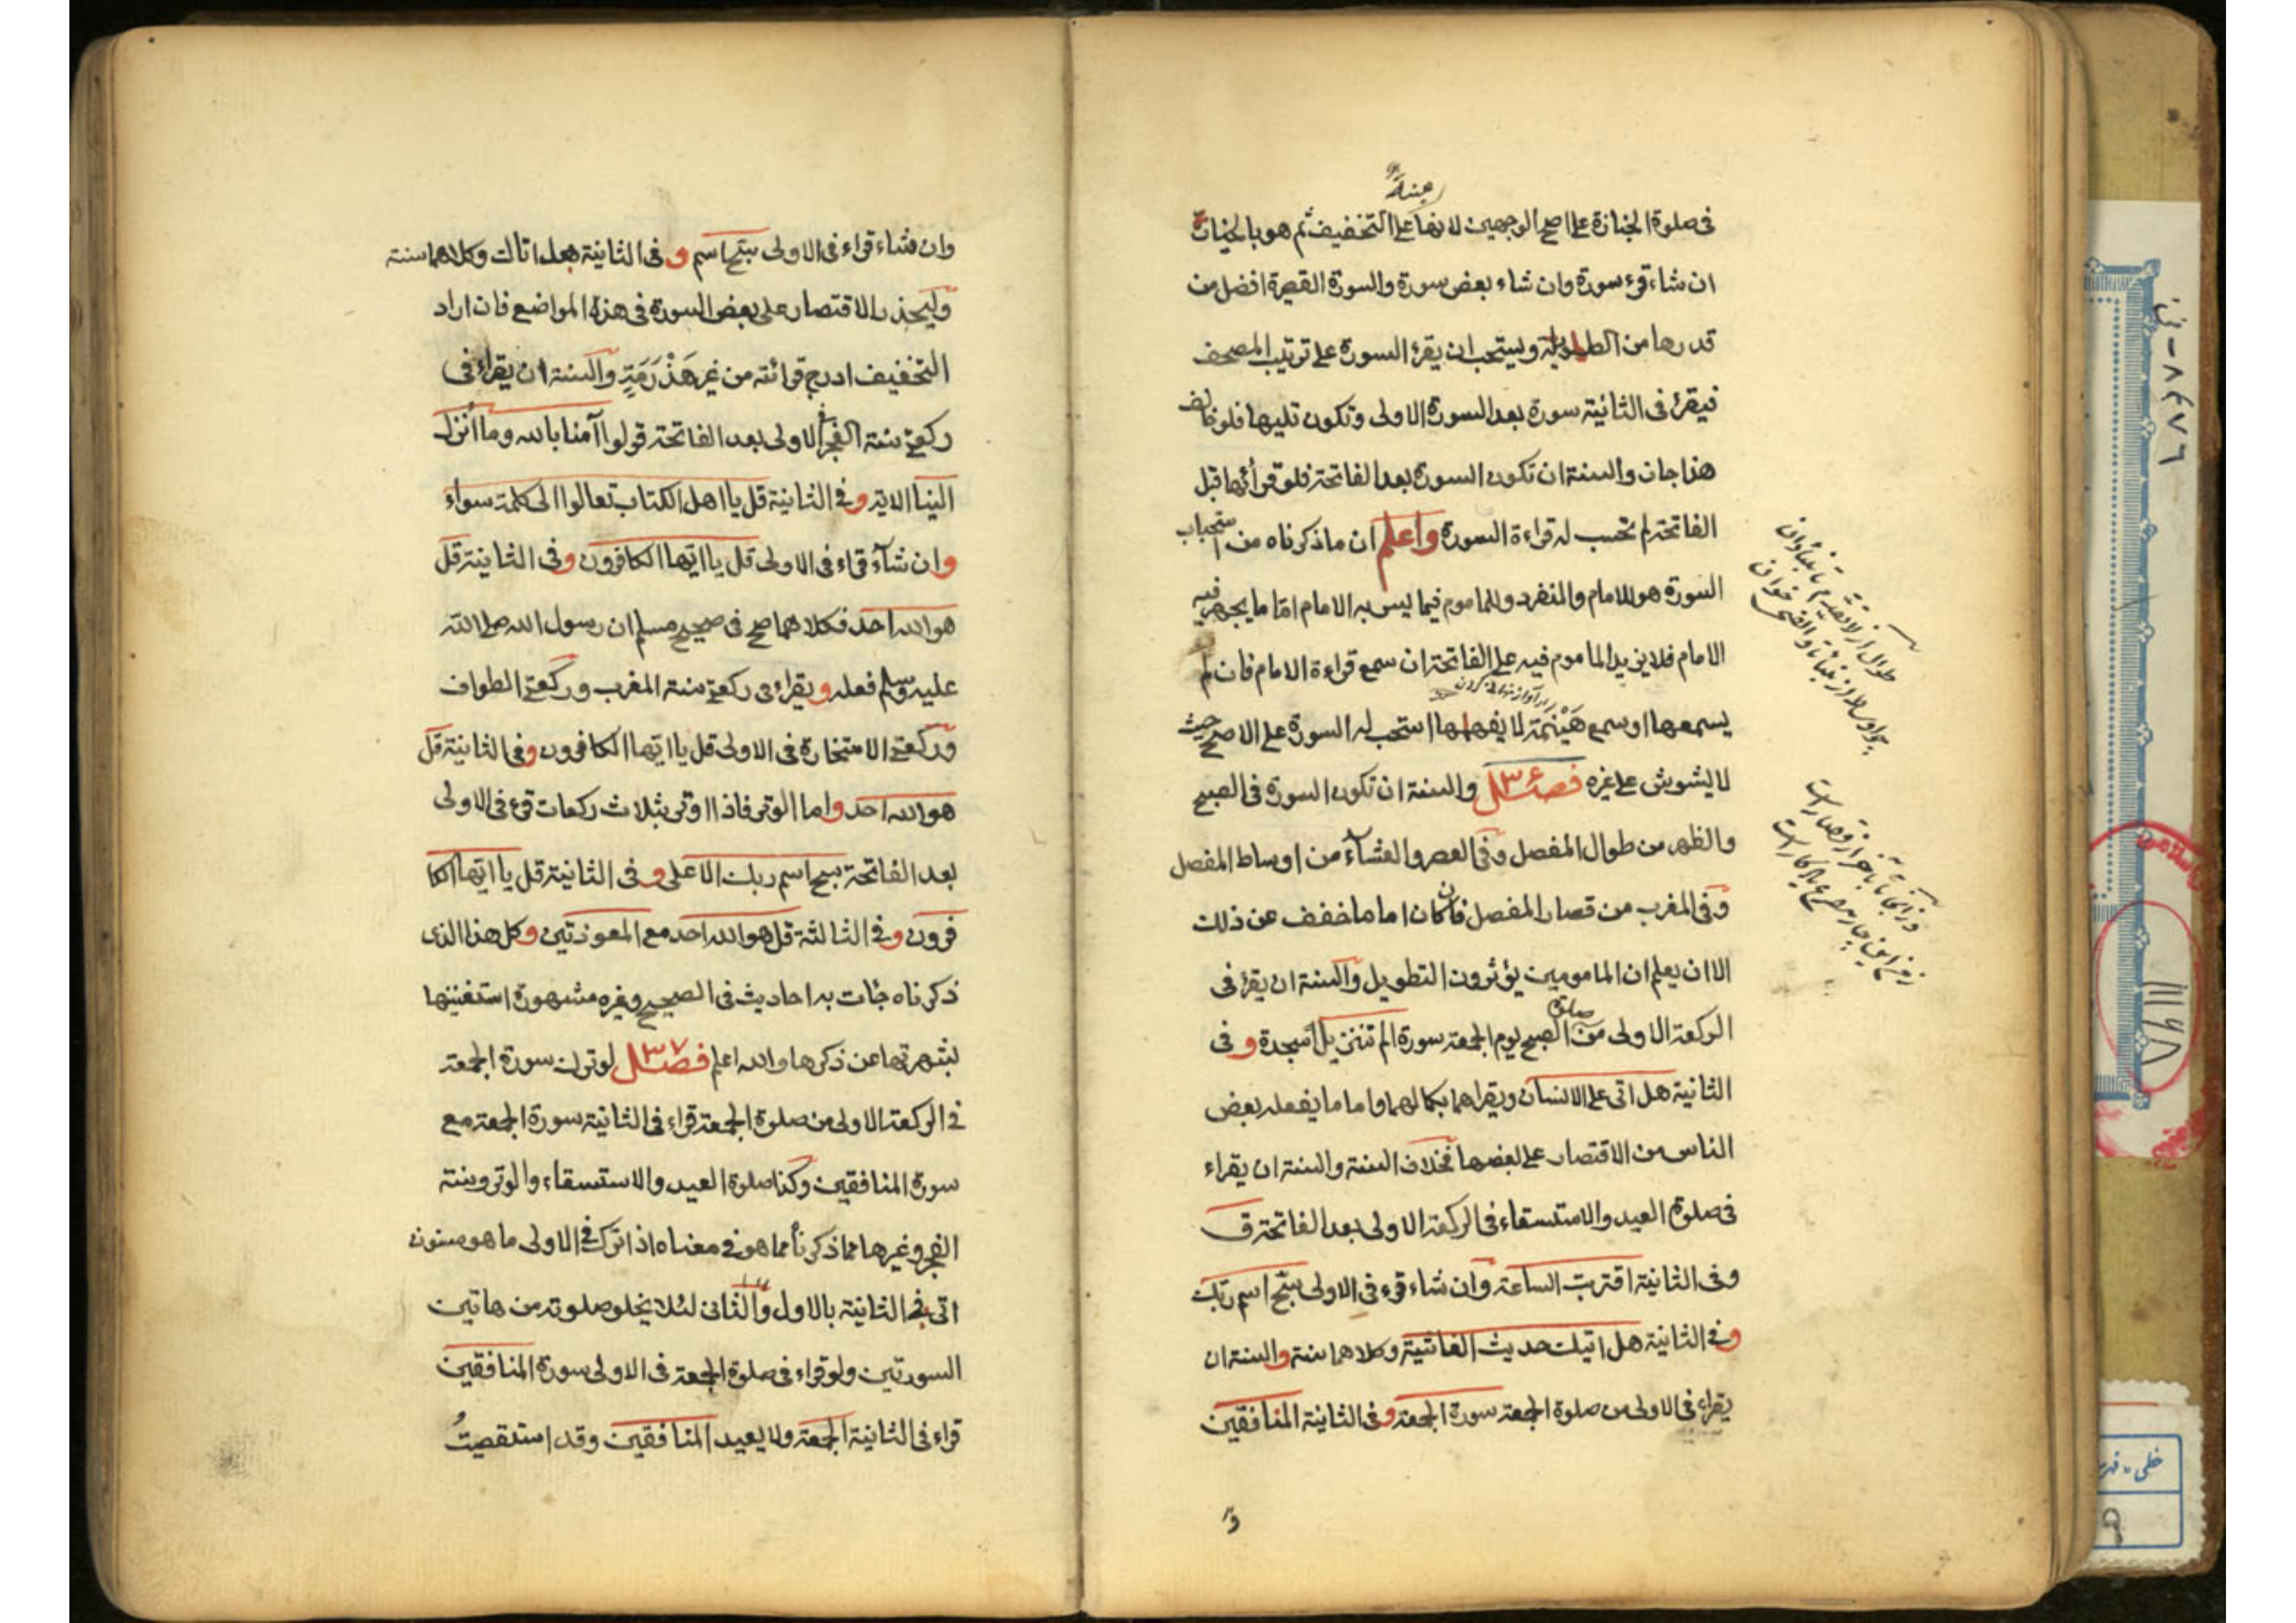 مبنية
فى صلوة الجنازة على اصح الوجهين لانها على التخفيف ثم هو بالخيار
ان شاء قرء سورة وان شاء بعض سورة والسورة القصيرة افضل من
قدرها من الطويلة ويستحب ان يقرء السورة على ترتيب المصحف
فيقرئ فى الثانية سورة بعد السورة الاولى وتكون تليها فلو خالف
هذا جاز والسنة ان تكون السورة بعد الفاتحة فلو قرأها قبل
الفاتحة لم تحسب له قراءة السورة واعلم ان ما ذكرناه من استحباب
السورة هو للامام والمنفرد وللماموم فيما يسر به الامام اما ما يجهر فيه
الامام فلا يزيد الماموم فيه على الفاتحة ان سمع قراءة الامام فان لم
يسمعها او سمع هَيْنمة لا يفهمها استحب له السورة على الاصح حيث
لا يشوش على غيره فصل ٣٦ والسنة ان تكون السورة فى الصبح
والظهر من طوال المفصل وفى العصر والعشاء من اوساط المفصل
وفى المغرب من قصار المفصل فان كان اماما خفف عن ذلك
الا ان يعلم ان المامومين يؤثرون التطويل والسنة ان يقرئ فى
الركعة الاولى من صلوة الصبح يوم الجمعة سورة الم تنزيل السجدة و فى
الثانية هل اتى على الانسان ويقراهما بكمالهما واما ما يفعله بعض
الناس من الاقتصار على بعضها فخلاف السنة والسنة ان يقراء
فى صلوة العيد والاستسقاء فى الركعة الاولى بعد الفاتحة ق
وفى الثانية اقتربت الساعة وان شاء قرء فى الاولى سبح اسم ربك
وفى الثانية هل اتيك حديث الغاشية وكلاهما سنة والسنة ان
يقراء فى الاولى من صلوة الجمعة سورة الجمعة وفى الثانية المنافقين
وان شاء قراء فى الاولى سبح اسم و فى الثانية هل اتاك وكلاهما سنة
وليحذر الاقتصار على بعض السورة فى هذه المواضع فان اراد
التخفيف ادرج قرائته من غير هَذْرَمَةٍ والسنة ان يقراء فى
ركعتى سنة الفجر فى الاولى بعد الفاتحة قولوا آمنا بالله وما اُنزل
الينا الاية وفى الثانية قل يا اهل الكتاب تعالوا الى كلمة سواء
وان شآء قراء فى الاولى قل يا ايها الكافرون وفى الثانية قل
هو الله احد فكلاهما صح فى صحيح مسلم ان رسول الله صلى الله
عليه وسلم فعله و يقراء فى ركعتى سنة المغرب وركعتى الطواف
وركعتى الاستخارة فى الاولى قل يا ايها الكافرون وفى الثانية قل
هو الله احد واما الوتر فاذا اوتر بثلاث ركعات قرء فى الاولى
بعد الفاتحة سبح اسم ربك الاعلى و فى الثانية قل يا ايها الكا
فرون وفى الثالثة قل هو الله احد مع المعوذتين وكل هذا الذى
ذكرناه جات به احاديث فى الصحيح وغيره مشهورة استغنينا
لشهرتها عن ذكرها والله اعلم فصل ٣٧ لو ترك سورة الجمعة
فى الركعة الاولى من صلوة الجمعة قراء فى الثانية سورة الجمعة مع
سورة المنافقين وكذا صلوة العيد والاستسقاء والوتر وسنة
الفجر وغيرها مما ذكرنا مما هو فى معناه اذا ترك فى الاولى ما هو مسنون
اتى فى الثانية بالاول والثانى لئلا يخلو صلوته من هاتين
السورتين ولو قراء فى صلوة الجمعة فى الاولى سورة المنافقين
قراء فى الثانية الجمعة ولا يعيد المنافقين وقد استقصيتُ